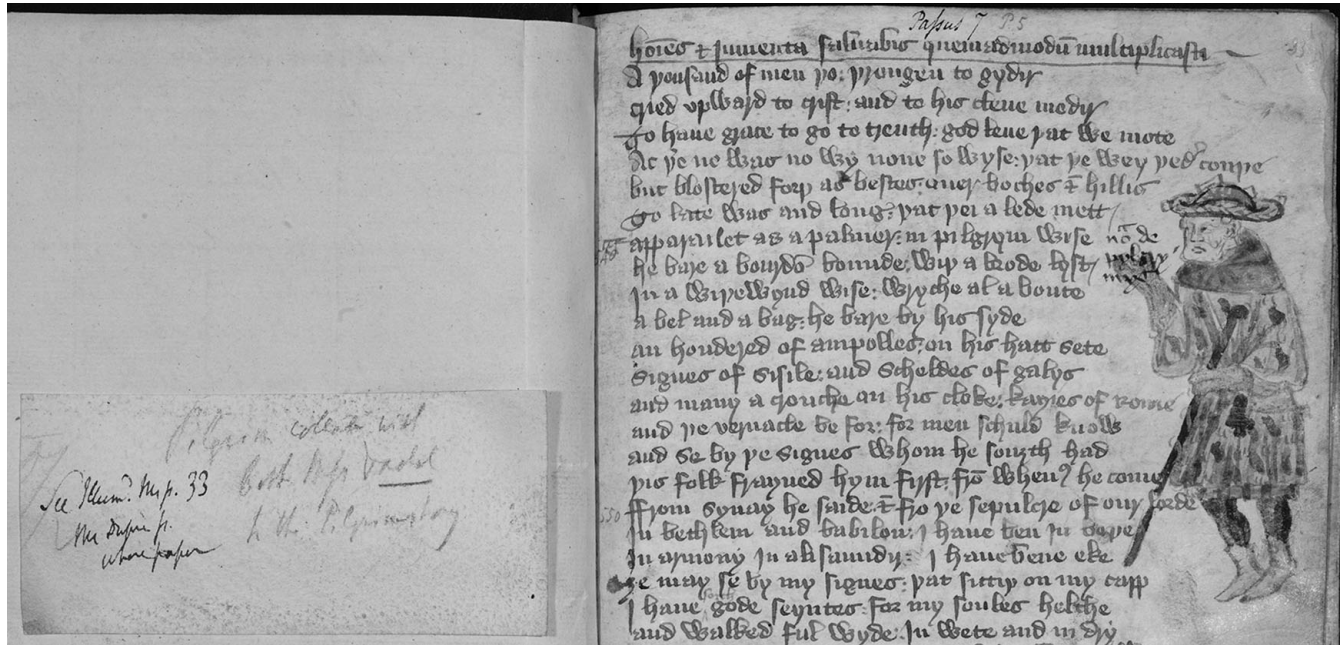 Pilgrim collate with
both Mss
See Illum. Ms p. 33
Passus 7 P. 5
homēs & iumenta saluabis quemadmodū multiplicasti
A þousand of men þo: þrongen to gydir
cried vpward to crist: and to his clene modyr
To haue grace to go to treuth: god leue þat we mote
Ac þe ne was no wy none so wyse: þat þe wey þeder couþe
but blostered forþ as bestes: ouer boches & hillis
To late was and long: þat þei a lede mett
apparailet as a palmer: in pilgrym wise
he bare a bourdō bounde: wiþ a brode lyst
In a wiþewynd wise: wryche al a boute
a bel and a bag: he bare by his syde
an hondered of ampolles: on his hatt sete
signes of sisile: and scheldes of galys
and many a crouche on his cloke: kayies of rome
and þe vernacle be for: for men schuld know
and se by þe signes whom he souȝth had
þis folk frayned hym first: frō when he come
ffrom synay he saide: & fro þe sepulcre of our lorde
In bethlem and babilon: I haue ben in boþe
In armony In alisaundyr: I haue bene eke
ȝe may se by my signes: þat sittiþ on my capp
I haue gode seyntes: for my soules helthe
and walked ful wyde: In wete and in dry